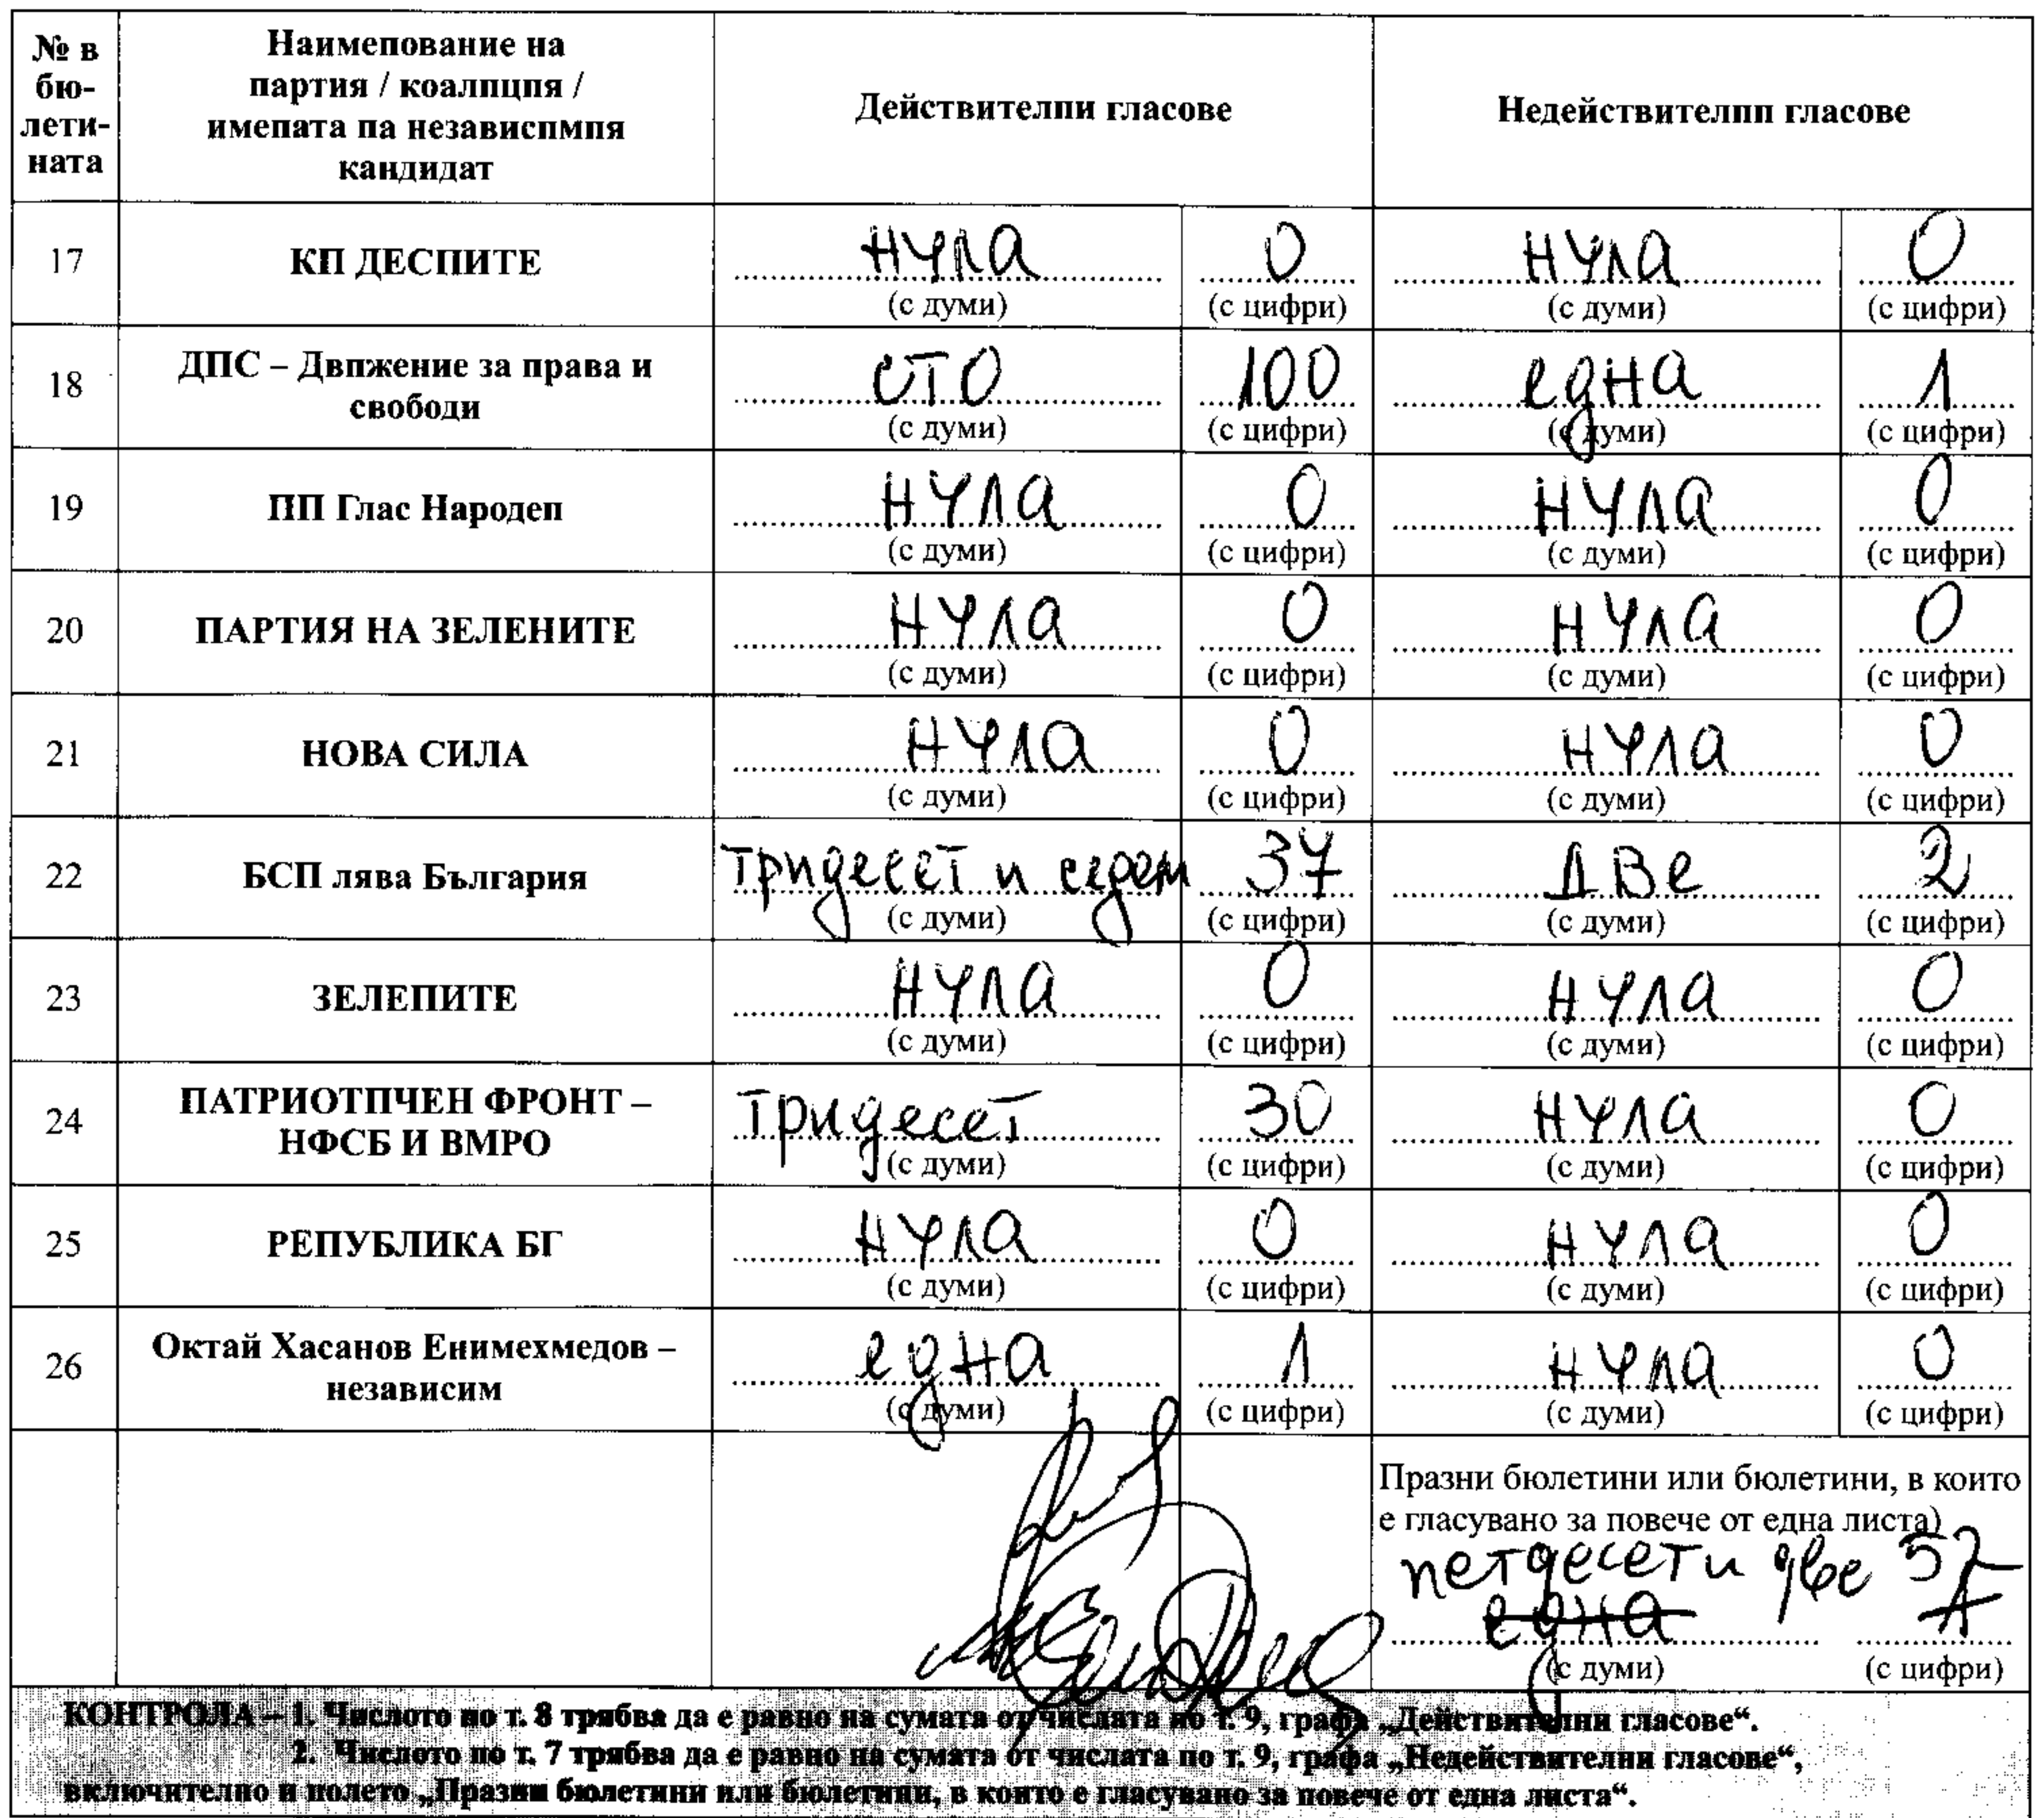 № в бю-лети-ната
Наименование на партия / коалиция / имената на независимия кандидат
Действителни гласове
Недействителни гласове
17 КП ДЕСПИТЕ нула 0 нула 0
(с думи) (с цифри) (с думи) (с цифри)
18 ДПС – Движение за права и свободи сто 100 една 1
(с думи) (с цифри) (с думи) (с цифри)
19 ПП Глас Народен нула 0 нула 0
(с думи) (с цифри) (с думи) (с цифри)
20 ПАРТИЯ НА ЗЕЛЕНИТЕ нула 0 нула 0
(с думи) (с цифри) (с думи) (с цифри)
21 НОВА СИЛА нула 0 нула 0
(с думи) (с цифри) (с думи) (с цифри)
22 БСП лява България тридесет и седем 37 две 2
(с думи) (с цифри) (с думи) (с цифри)
23 ЗЕЛЕНИТЕ нула 0 нула 0
(с думи) (с цифри) (с думи) (с цифри)
24 ПАТРИОТИЧЕН ФРОНТ – НФСБ И ВМРО тридесет 30 нула 0
(с думи) (с цифри) (с думи) (с цифри)
25 РЕПУБЛИКА БГ нула 0 нула 0
(с думи) (с цифри) (с думи) (с цифри)
26 Октай Хасанов Енимехмедов – независим една 1 нула 0
(с думи) (с цифри) (с думи) (с цифри)
Празни бюлетини или бюлетини, в които
е гласувано за повече от една листа)
петдесет и две 52
една 1
(с думи) (с цифри)
КОНТРОЛА – 1. Числото по т. 8 трябва да е равно на сумата от числата по т. 9, графа „Действителни гласове“.
2. Числото по т. 7 трябва да е равно на сумата от числата по т. 9, графа „Недействителни гласове“,
включително и полето „Празни бюлетини или бюлетини, в които е гласувано за повече от една листа“.